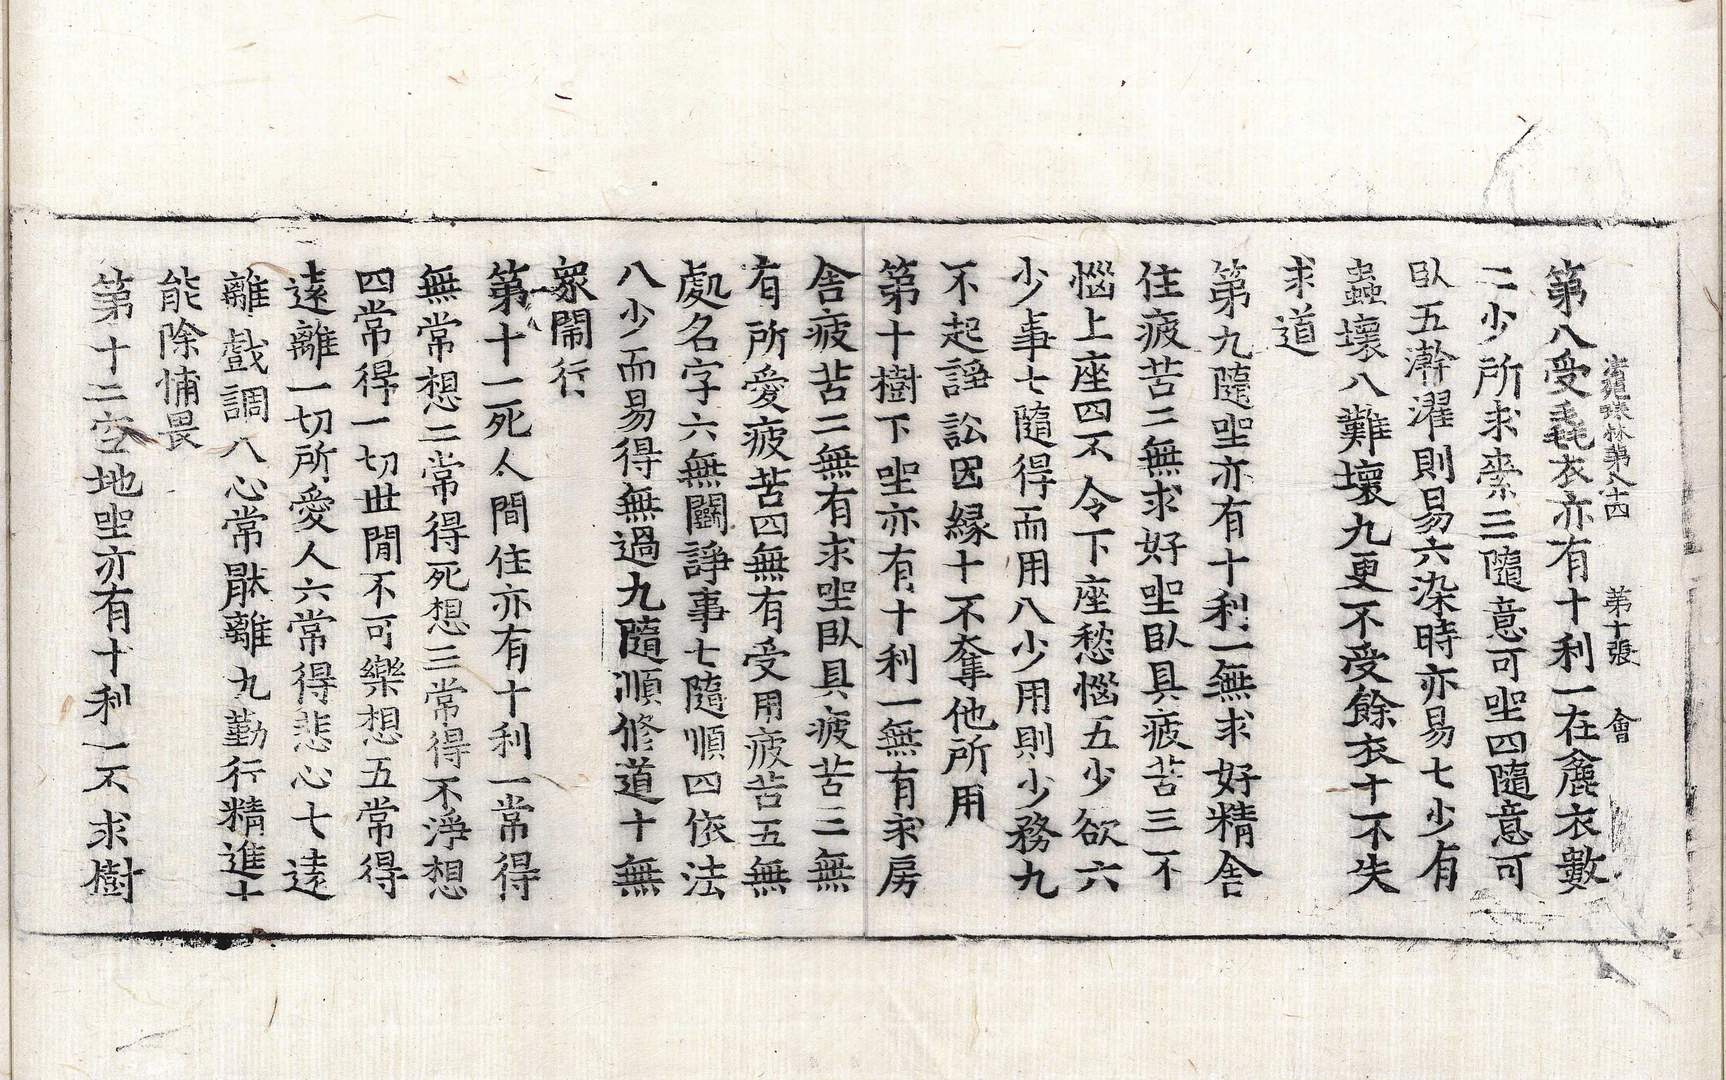 法苑珠林第八十四　第十張　會
第八受毳衣亦有十利一在麁衣數
二少所求索三隨意可坐四隨意可
臥五澣濯則易六染時亦易七少有
蟲壞八難壞九更不受餘衣十不失
求道
第九隨坐亦有十利一無求好精舍
住疲苦二無求好坐臥具疲苦三不
惱上座四不令下座愁惱五少欲六
少事七隨得而用八少用則少務九
不起諍訟因緣十不奪他所用
第十樹下坐亦有十利一無有求房
舍疲苦二無有求坐臥具疲苦三無
有所愛疲苦四無有受用疲苦五無
處名字六無鬪諍事七隨順四依法
八少而易得無過九隨順修道十無
眾鬧行
第十一死人間住亦有十利一常得
無常想二常得死想三常得不淨想
四常得一切世閒不可樂想五常得
遠離一切所愛人六常得悲心七遠
離戲調八心常猒離九勤行精進十
能除怖畏
第十二空地坐亦有十利一不求樹